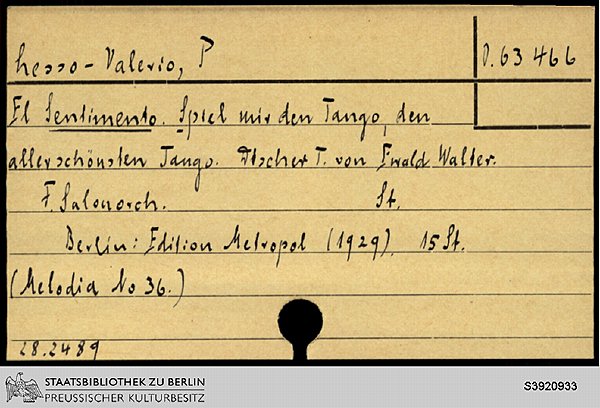 hesso-Valerio, P
O. 63 466
El Sentimento. Spiel mir den Tango, den
allerschönsten Tango. Dtscher T. von Ewald Walter.
F. Salonorch. St.
Berlin: Edition Metropol (1929). 15 St.
(Melodia No 36.)
28.2489
STAATSBIBLIOTHEK ZU BERLIN
PREUSSISCHER KULTURBESITZ
S3920933